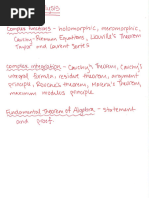 Complex functions - holomorphic, meromorphic,
Cauchy-Riemann Equations, Liouville's Theorem
Taylor and Laurent Series
Complex integration - Cauchy's Theorem, Cauchy's
integral formula, residue theorem, argument
principle, Rouche's theorem, Morera's Theorem,
maximum modulus principle
Fundamental Theorem of Algebra - statement
and proof.